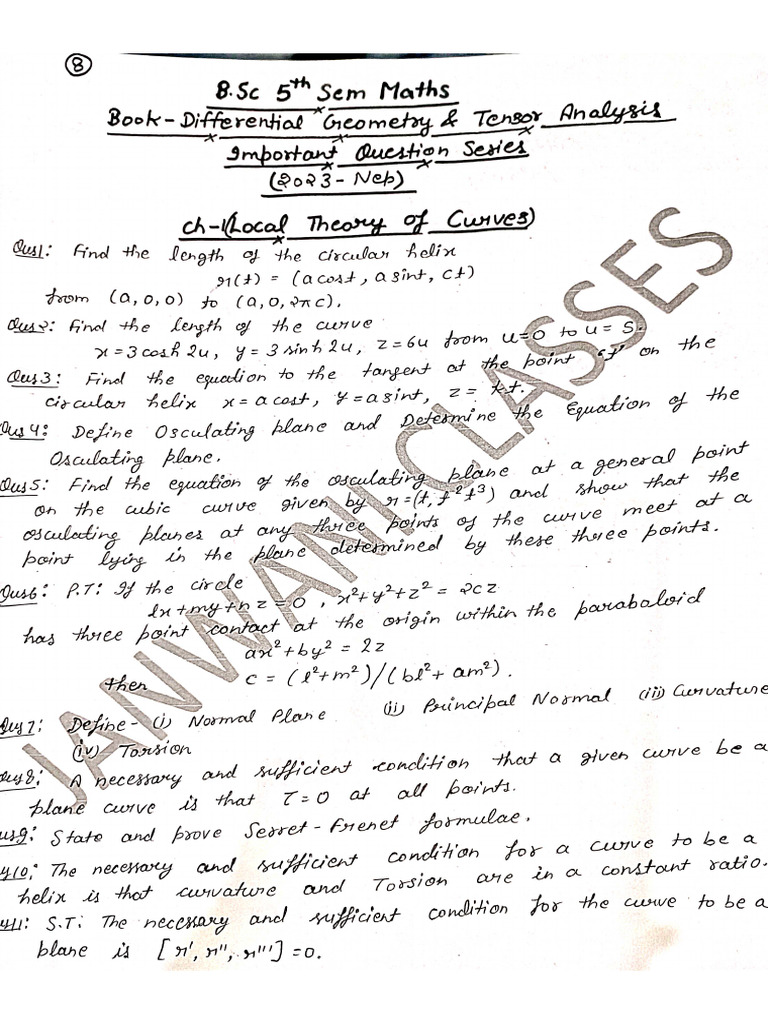 8
B.Sc 5th Sem Maths
Book-Differential Geometry & Tensor Analysis
Important Question Series
(2023-Nep)
Ch-1(Local Theory of Curves)
Ques1: Find the length of the circular helix
r(t) = (a cost, a sint, ct)
from (a,0,0) to (a,0,2πc).
Ques2: Find the length of the curve
x=3cosh2u, y=3sinh2u, z=6u from u=0 to u=5.
Ques3: Find the equation to the tangent at the point 't' on the
circular helix x=a cost, y=a sint, z= ct.
Ques4: Define Osculating plane and Determine the Equation of the
Osculating plane.
Ques5: Find the equation of the osculating plane at a general point
on the cubic curve given by r=(t, t² t³) and show that the
osculating planes at any three points of the curve meet at a
point lying in the plane determined by these three points.
Ques6: P.T: If the circle
lx+my+nz=0, x²+y²+z²=2cz
has three point contact at the origin within the paraboloid
ax²+by²=2z
then c=(l²+m²)/(bl²+am²).
Ques7: Define- (i) Normal Plane (ii) Principal Normal (iii) Curvature
(iv) Torsion
ques8: A necessary and sufficient condition that a given curve be a
plane curve is that τ=0 at all points.
ues9: State and prove Serret-Frenet formulae.
410: The necessary and sufficient condition for a curve to be a
helix is that curvature and Torsion are in a constant ratio.
411: S.T: The necessary and sufficient condition for the curve to be a
plane is [r', r'', r''']=0.
JANWANI CLASSES